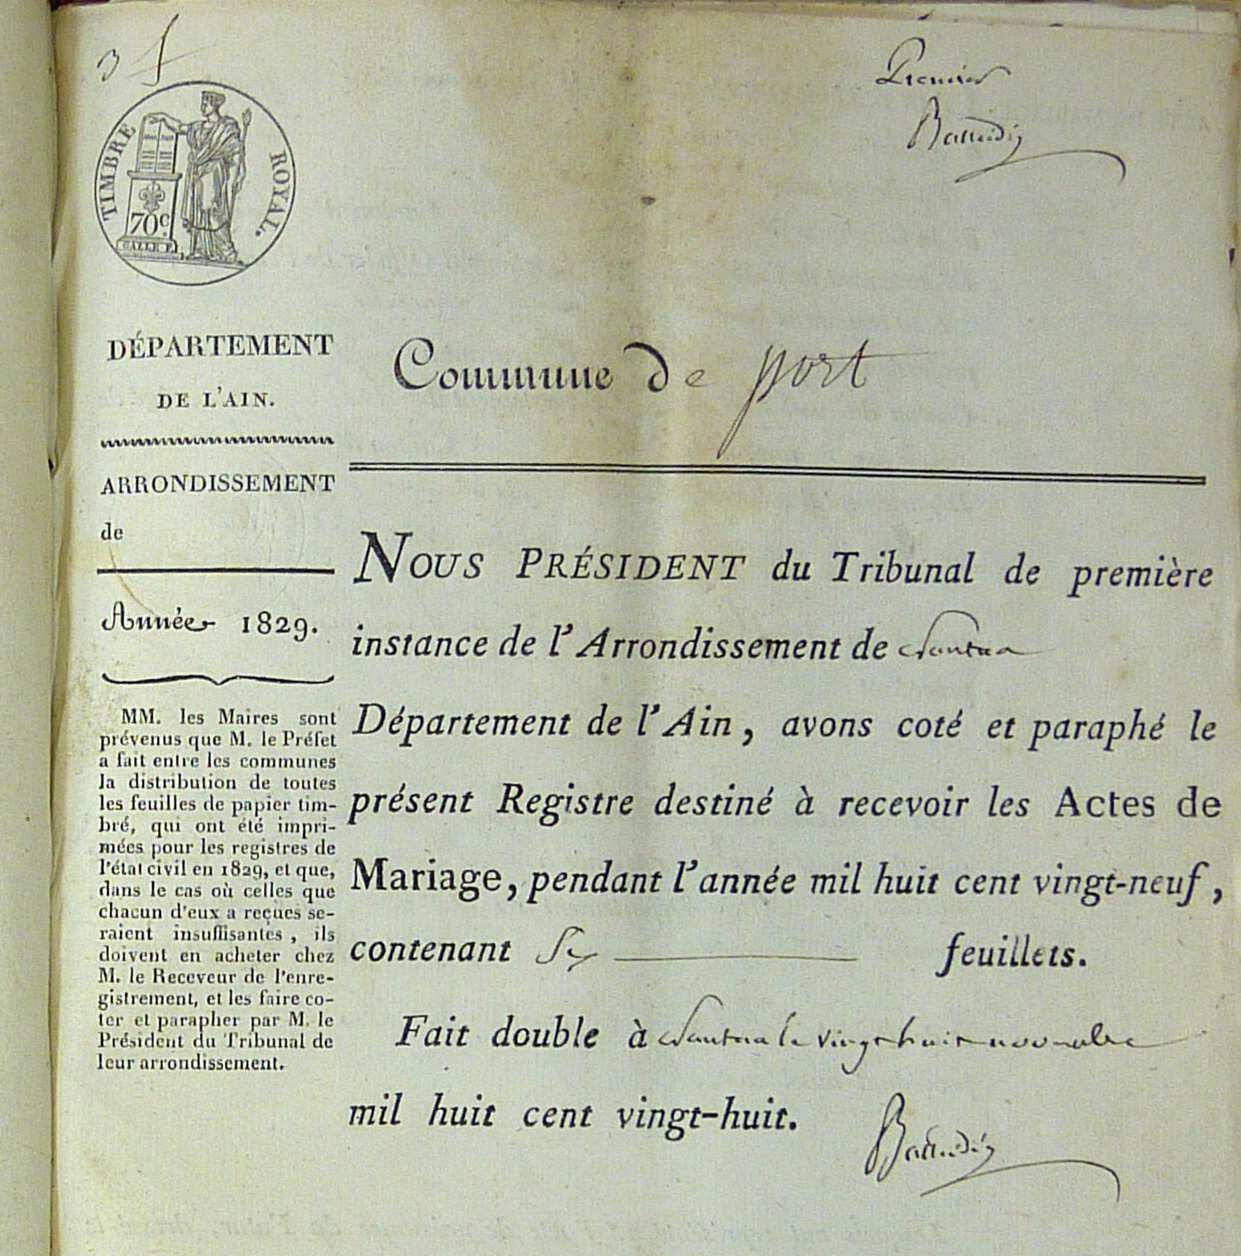 3 f
Premier
TIMBRE ROYAL.
70c
DÉPARTEMENT
DE L'AIN.
Commune de port
ARRONDISSEMENT
de
Année 1829.
MM. les Maires sont
prévenus que M. le Préfet
a fait entre les communes
la distribution de toutes
les feuilles de papier tim-
bré, qui ont été impri-
mées pour les registres de
l'état civil en 1829, et que,
dans le cas où celles que
chacun d'eux a reçues se-
raient insuffisantes, ils
doivent en acheter chez
M. le Receveur de l'enre-
gistrement, et les faire co-
ter et parapher par M. le
Président du Tribunal de
leur arrondissement.
NOUS PRÉSIDENT du Tribunal de première
instance de l'Arrondissement de Nantua
Département de l'Ain, avons coté et paraphé le
présent Registre destiné à recevoir les Actes de
Mariage, pendant l'année mil huit cent vingt-neuf,
contenant feuillets.
Fait double à Nantua le vingt huit novembre
mil huit cent vingt-huit.